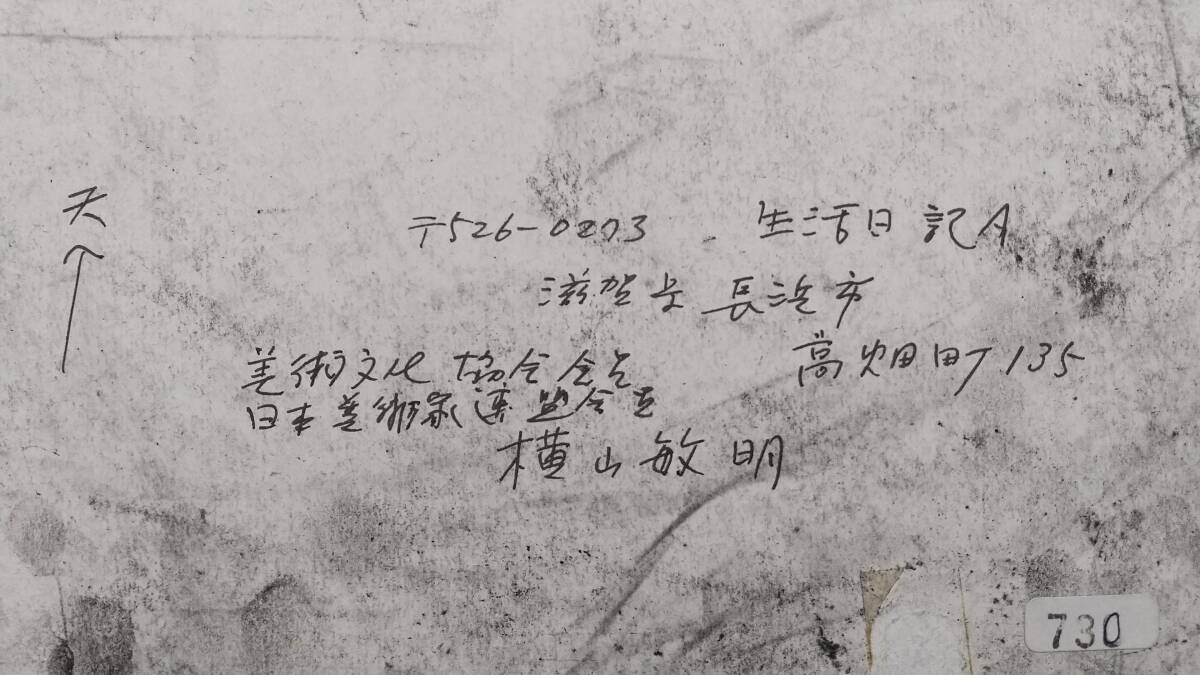 天
〒526-0203 生活日記A
滋賀県長浜市
高畑町135
美術文化協会会員
日本美術家連盟会員
横山敏明
730